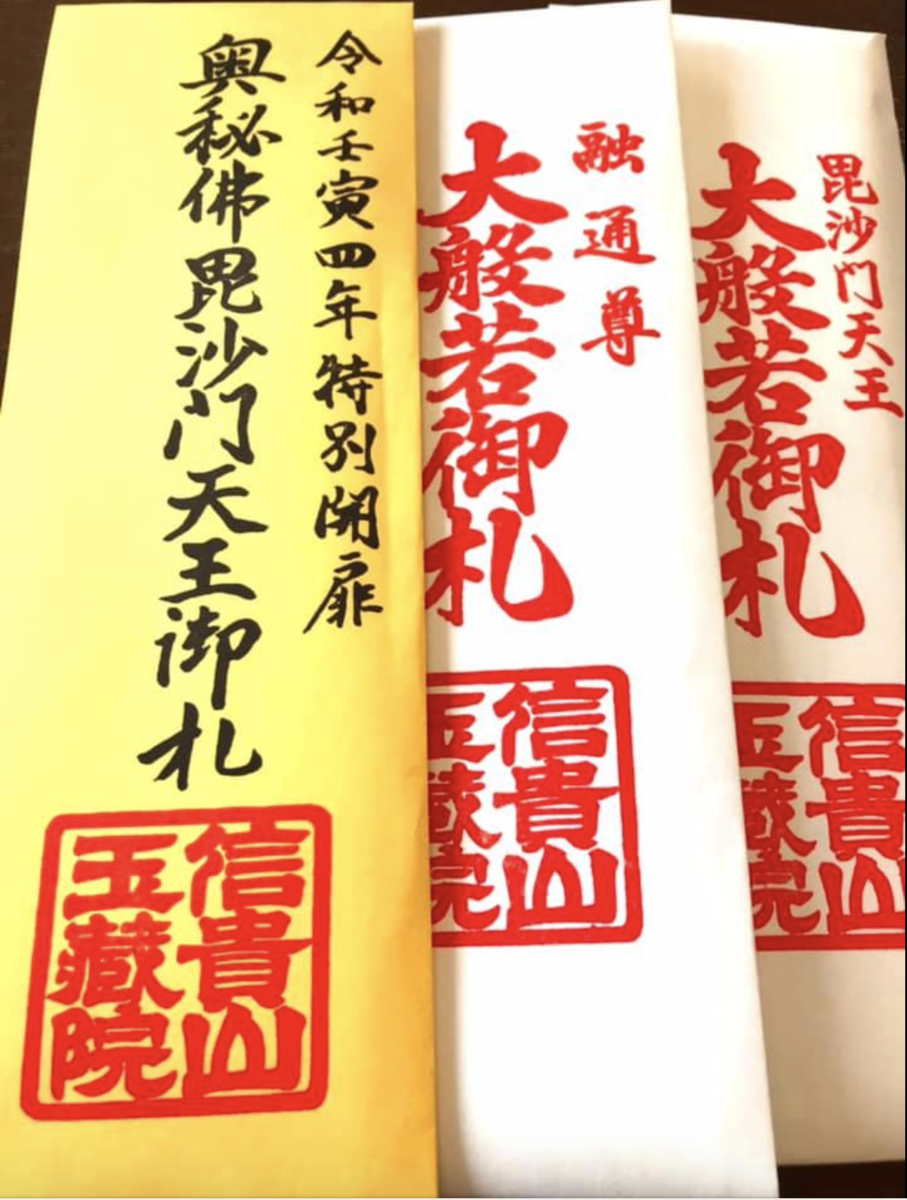 毘沙门天王
大般若御札
信貴山
玉藏院
融通尊
大般若御札
信貴山
玉藏院
令和壬寅四年特别開扉
奥秘佛毘沙门天王御札
信貴山
玉藏院